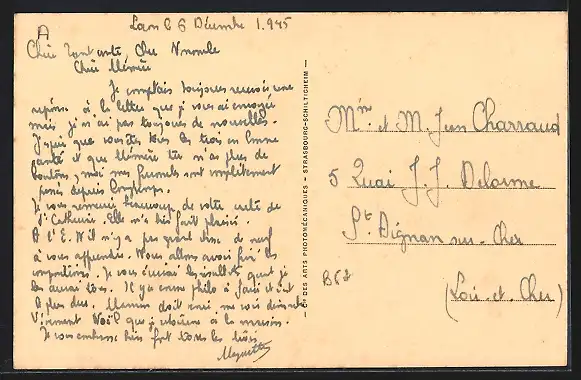 A
Laon le 6 Décembre 1.945
Chère Tantante, Cher Nnoncle
Chère Mémée
Je comptais toujours recevoir une
réponse à la lettre que je vous ai envoyée
mais je n'ai pas toujours de nouvelles.
J'espère que vous êtes tous les trois en bonne
santé et que Mémée tu n'as plus de
boutons, moi mes furoncles sont complètement
passés depuis longtemps.
Je vous remercie beaucoup de votre carte de
Ste Catherine. Elle m'a très fait plaisir.
A l'E. N. il n'y a pas grand chose de neuf
à vous apprendre. Nous allons avoir fini les
compositions. Je vous enverrai les résultats quand je
les aurai tous. Il y a encore philo à faire et c'est
le plus dur. Maman doit venir me voir dimanche
Vivement Noël que je retourne à la maison.
Je vous embrasse bien fort tous les trois
Huguette
— Cie DES ARTS PHOTOMÉCANIQUES - STRASBOURG-SCHILTIGHEIM —
Mme et M. Jean Charraud
5 Quai J. J. Delorme
St. Aignan sur-Cher
B68
(Loir-et-Cher)